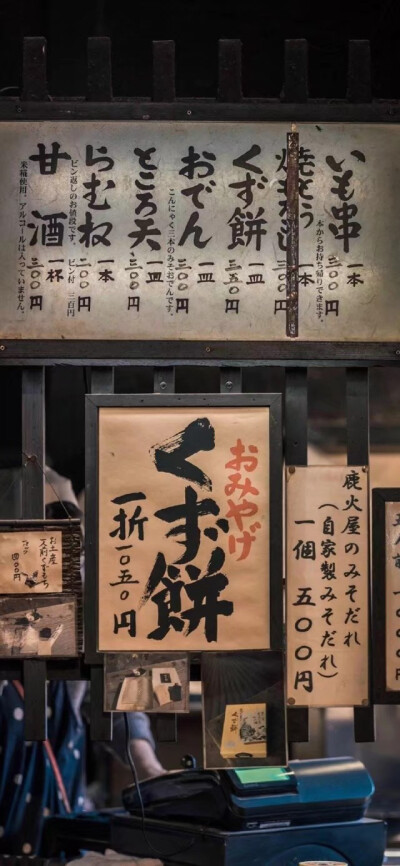 いも串
一本
三〇〇円
一本からお持ち帰りできます。
くず餅
一皿
三五〇円
おでん
一皿
三〇〇円
こんにゃく三本のみそおでんです。
ところ天
一皿
三〇〇円
らむね
一本
二〇〇円
ビン返しのお値段です。
ビン付 三百円
甘酒
一杯
三〇〇円
米糀使用、アルコールは入っていません。
おみやげ
くず餅
一折一〇五〇円
鹿火屋のみそだれ
(自家製みそだれ)
一個 五〇〇円
お土産